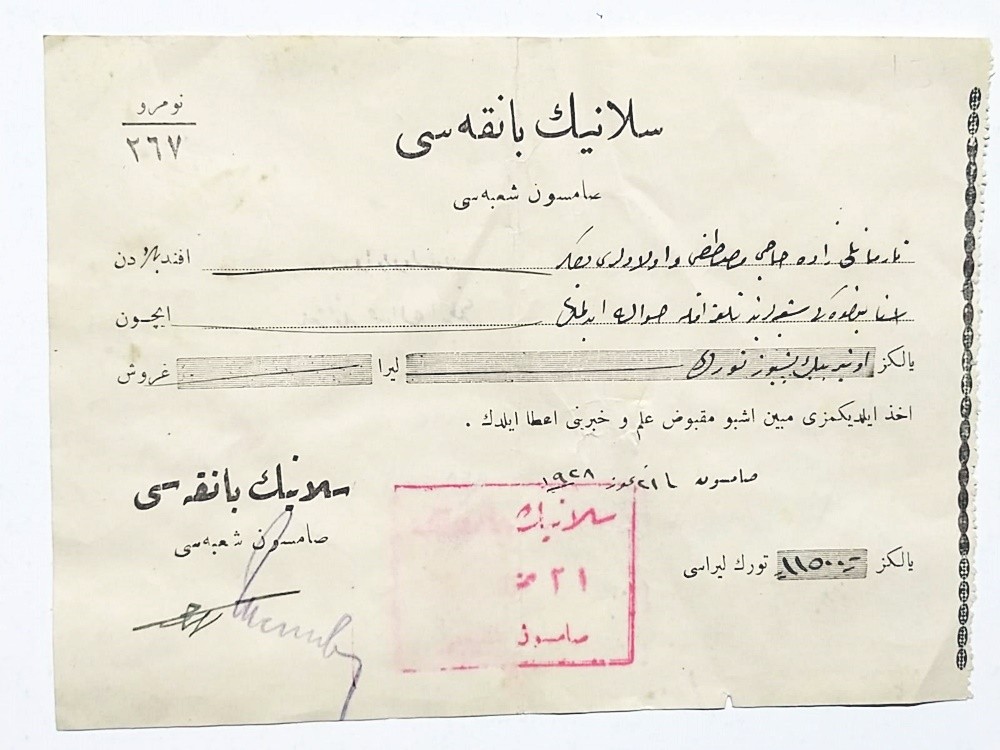 نومرو
٢٦٧
سلانيك بانقه سی
صامسون شعبه سی
زاده حاجی مصطفی و اولادلری افنديلردن
ايچون
يالكز اون بر بيك بشيوز تورك ليرا غروش
اخذ ايلديكمزی مبين اشبو مقبوض علم و خبرينی اعطا ايلدك .
صامسون ٢١ تموز ١٩٢٨
سلانيك بانقه سی
صامسون شعبه سی
سلانيك
٢١
صامسون
يالكز ١١٥٠٠ تورك ليراسی